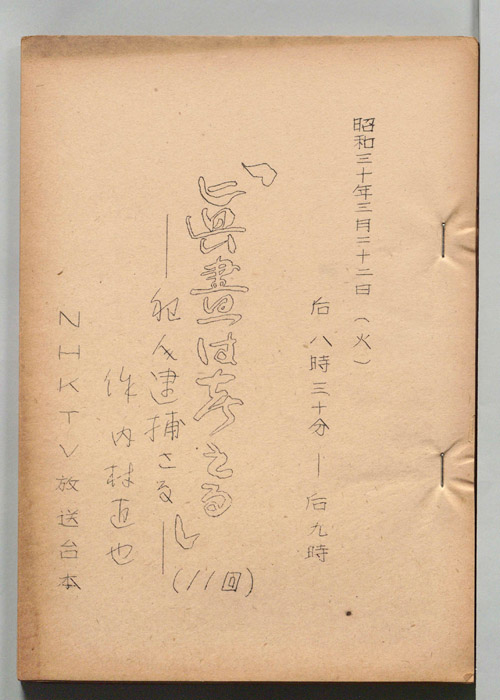 昭和三十年三月二十二日(火)
后八時三十分―后九時
『眞晝は考える』(11回)
―犯人逮捕さる―
作 内村直也
NHKTV放送台本